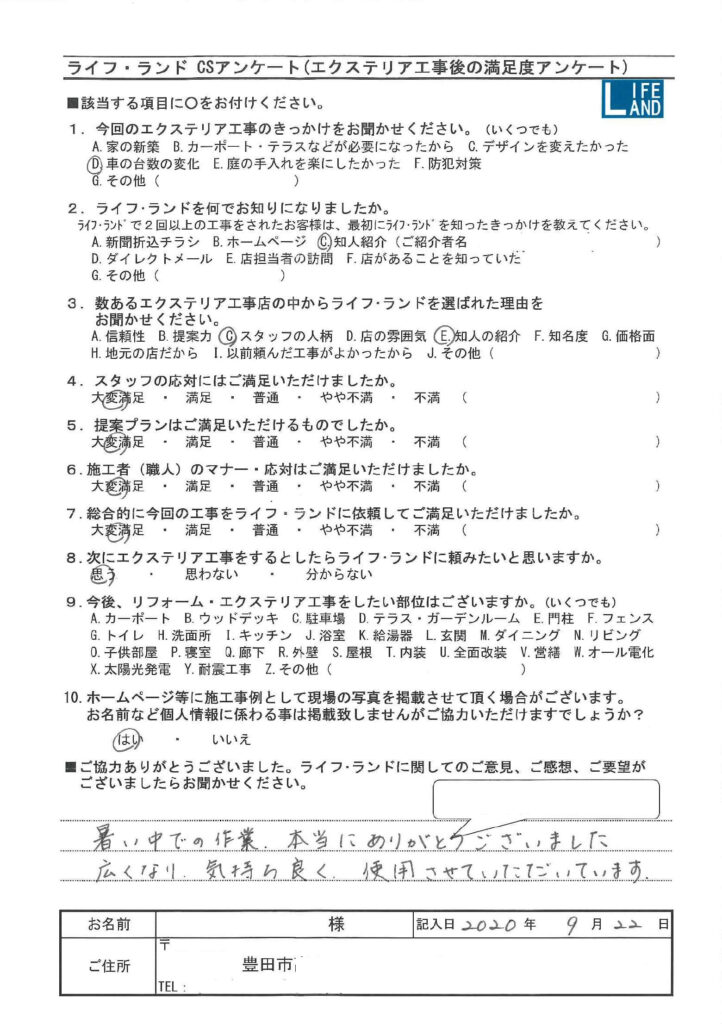 ライフ・ランド CSアンケート(エクステリア工事後の満足度アンケート)
LIFE LAND
■該当する項目に〇をお付けください。
1．今回のエクステリア工事のきっかけをお聞かせください。（いくつでも）
A.家の新築 B.カーポート・テラスなどが必要になったから C.デザインを変えたかった
D.車の台数の変化 E.庭の手入れを楽にしたかった F.防犯対策
G.その他（ ）
2．ライフ・ランドを何でお知りになりましたか。
ﾗｲﾌ･ﾗﾝﾄﾞで２回以上の工事をされたお客様は、最初にﾗｲﾌ･ﾗﾝﾄﾞを知ったきっかけを教えてください。
A.新聞折込チラシ B.ホームページ C.知人紹介（ご紹介者名 ）
D.ダイレクトメール E.店担当者の訪問 F.店があることを知っていた
G.その他（ ）
3．数あるエクステリア工事店の中からライフ・ランドを選ばれた理由を
お聞かせください。
A.信頼性 B.提案力 C.スタッフの人柄 D.店の雰囲気 E.知人の紹介 F.知名度 G.価格面
H.地元の店だから I.以前頼んだ工事がよかったから J.その他（ ）
4．スタッフの応対にはご満足いただけましたか。
大変満足 ・ 満足 ・ 普通 ・ やや不満 ・ 不満 （ ）
5．提案プランはご満足いただけるものでしたか。
大変満足 ・ 満足 ・ 普通 ・ やや不満 ・ 不満 （ ）
6.施工者（職人）のマナー・応対はご満足いただけましたか。
大変満足 ・ 満足 ・ 普通 ・ やや不満 ・ 不満 （ ）
7.総合的に今回の工事をライフ・ランドに依頼してご満足いただけましたか。
大変満足 ・ 満足 ・ 普通 ・ やや不満 ・ 不満 （ ）
8.次にエクステリア工事をするとしたらライフ・ランドに頼みたいと思いますか。
思う ・ 思わない ・ 分からない
9．今後、リフォーム・エクステリア工事をしたい部位はございますか。（いくつでも）
A.カーポート B.ウッドデッキ C.駐車場 D.テラス・ガーデンルーム E.門柱 F.フェンス
G.トイレ H.洗面所 I.キッチン J.浴室 K.給湯器 L.玄関 M.ダイニング N.リビング
O.子供部屋 P.寝室 Q.廊下 R.外壁 S.屋根 T.内装 U.全面改装 V.営繕 W.オール電化
X.太陽光発電 Y.耐震工事 Z.その他（ ）
10.ホームページ等に施工事例として現場の写真を掲載させて頂く場合がございます。
お名前など個人情報に係わる事は掲載致しませんがご協力いただけますでしょうか？
はい ・ いいえ
■ご協力ありがとうございました。ライフ・ランドに関してのご意見、ご感想、ご要望が
ございましたらお聞かせください。
暑い中での作業、本当にありがとうございました
広くなり、気持ち良く、使用させていただいています。
お名前 様 記入日 2020 年 9 月 22 日
〒
ご住所 豊田市
TEL：